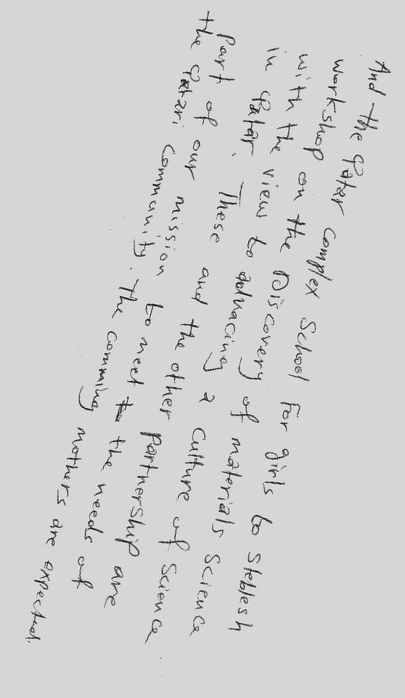 And the Qatar Complex School for girls to steblesh
workshop on the Discovery of materials Science
with the view to advacing a culture of Science
in Qatar. These and the other partnership are
part of our mission to meet the needs of
the Qatari community. The comming mothers are expected.